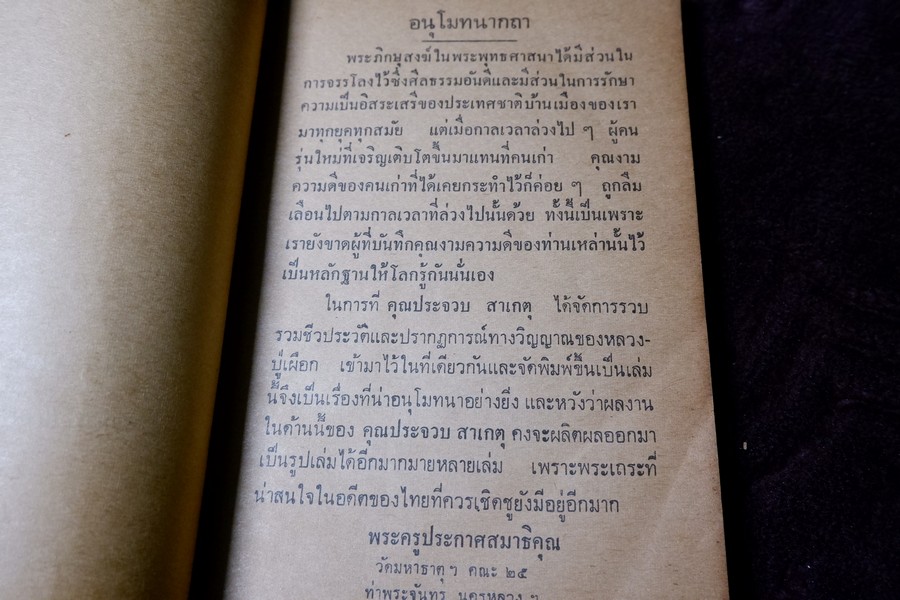 อนุโมทนากถา
พระภิกษุสงฆ์ในพระพุทธศาสนาได้มีส่วนใน
การจรรโลงไว้ซึ่งศีลธรรมอันดีและมีส่วนในการรักษา
ความเป็นอิสระเสรีของประเทศชาติบ้านเมืองของเรา
มาทุกยุคทุกสมัย แต่เมื่อกาลเวลาล่วงไป ๆ ผู้คน
รุ่นใหม่ที่เจริญเติบโตขึ้นมาแทนที่คนเก่า คุณงาม
ความดีของคนเก่าที่ได้เคยกระทำไว้ก็ค่อย ๆ ถูกลืม
เลือนไปตามกาลเวลาที่ล่วงไปนั้นด้วย ทั้งนี้เป็นเพราะ
เรายังขาดผู้ที่บันทึกคุณงามความดีของท่านเหล่านั้นไว้
เป็นหลักฐานให้โลกรู้กันนั่นเอง
ในการที่ คุณประจวบ สาเกตุ ได้จัดการรวบ
รวมชีวประวัติและปรากฏการณ์ทางวิญญาณของหลวง-
ปู่เผือก เข้ามาไว้ในที่เดียวกันและจัดพิมพ์ขึ้นเป็นเล่ม
นี้จึงเป็นเรื่องที่น่าอนุโมทนาอย่างยิ่ง และหวังว่าผลงาน
ในด้านนี้ของ คุณประจวบ สาเกตุ คงจะผลิตผลออกมา
เป็นรูปเล่มได้อีกมากมายหลายเล่ม เพราะพระเถระที่
น่าสนใจในอดีตของไทยที่ควรเชิดชูยังมีอยู่อีกมาก
พระครูประกาศสมาธิคุณ
วัดมหาธาตุฯ คณะ ๒๕
ท่าพระจันทร์ นครหลวง ฯ